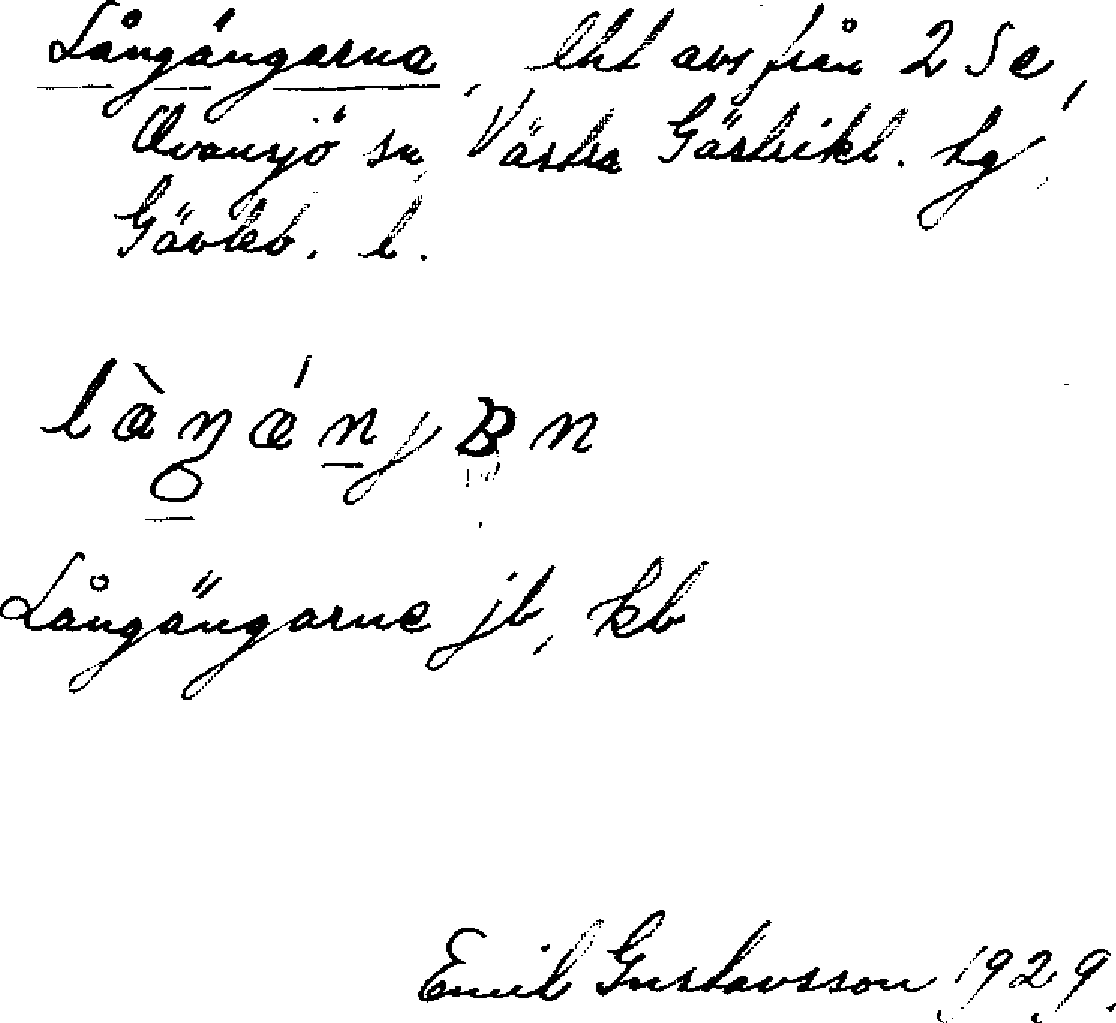 Långängarna, lht avs från 2 Se,
Ovansjö sn, Västra Gästrikl. hg,
Gävleb. l.
Långängarne jb, kb
Emil Gustavsson 1929.